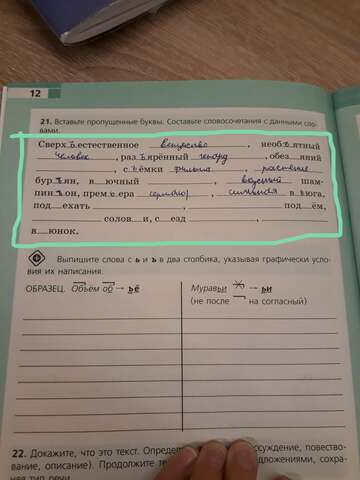 12
21. Вставьте пропущенные буквы. Составьте словосочетания с данными сло-
вами.
Сверх ъ естественное вещество, необ ъ ятный
человек, раз ъ ярённый гепард, обез__яний
__________, с ъ ёмки фильма, растение
бур__ян, в__ючный __________, вкусный шам-
пин__он, прем ь ера сериалов, сильная в ь юга,
под__ехать __________, __________ под__ём,
__________ солов__и, с__езд __________,
в__юнок.
Выпишите слова с ь и ъ в два столбика, указывая графически усло-
вия их написания.
ОБРАЗЕЦ. Объём об → ъё
Муравьи → ьи
(не после на согласный)
22. Докажите, что это текст. Определ ссуждение, повество-
вание, описание). Продолжите те едложениями, сохра-
няя тип речи.